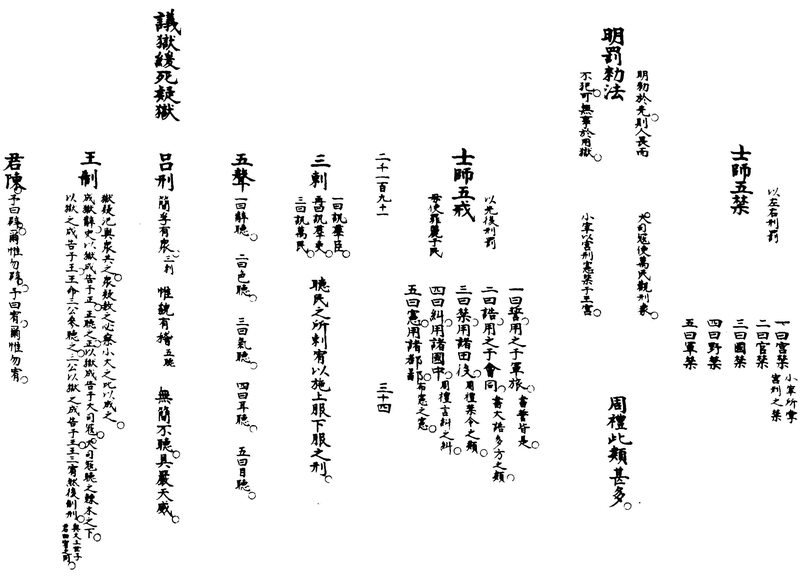 士師五禁
以左右刑罰
一曰宮禁
小宰所掌
宮刑之禁
二曰官禁
三曰國禁
四曰野禁
五曰軍禁
明罰勑法
明勑於先則人畏而
不犯可無事於用獄
大司寇使萬民觀刑象
小宰以宮刑憲禁于王宮
周禮此類甚多
士師五戒
以先後刑罰
毋使罪麗于民
一曰誓用之于軍旅 書誓皆是
二曰誥用之于會同 書大誥多方之類
三曰禁用諸田役 周禮禁令之類
四曰糾用諸國中 周禮言糾之糾
五曰憲用諸都鄙 布憲之憲
二千一百九十一 三十四
三刺
一曰訊羣臣
再曰訊羣吏
三曰訊萬民
聽民之所刺宥以施上服下服之刑
五聲 一曰辭聽 二曰色聽 三曰氣聽 四曰耳聽 五曰目聽
議獄緩死疑獄
呂刑 簡孚有衆 三刺 惟貌有稽 五聽 無簡不聽具嚴天威
王制
獄疑汜與衆共之衆疑赦之必察小大之比以成之
成獄辭史以獄成告于正正聽之正以獄成告于大司寇大司寇聽之棘木之下
以獄之成告于王王命三公參聽之三公以獄之成告于王王三宥然後制刑
與文王世子
君陳 予曰辟爾惟勿辟予曰宥爾惟勿宥